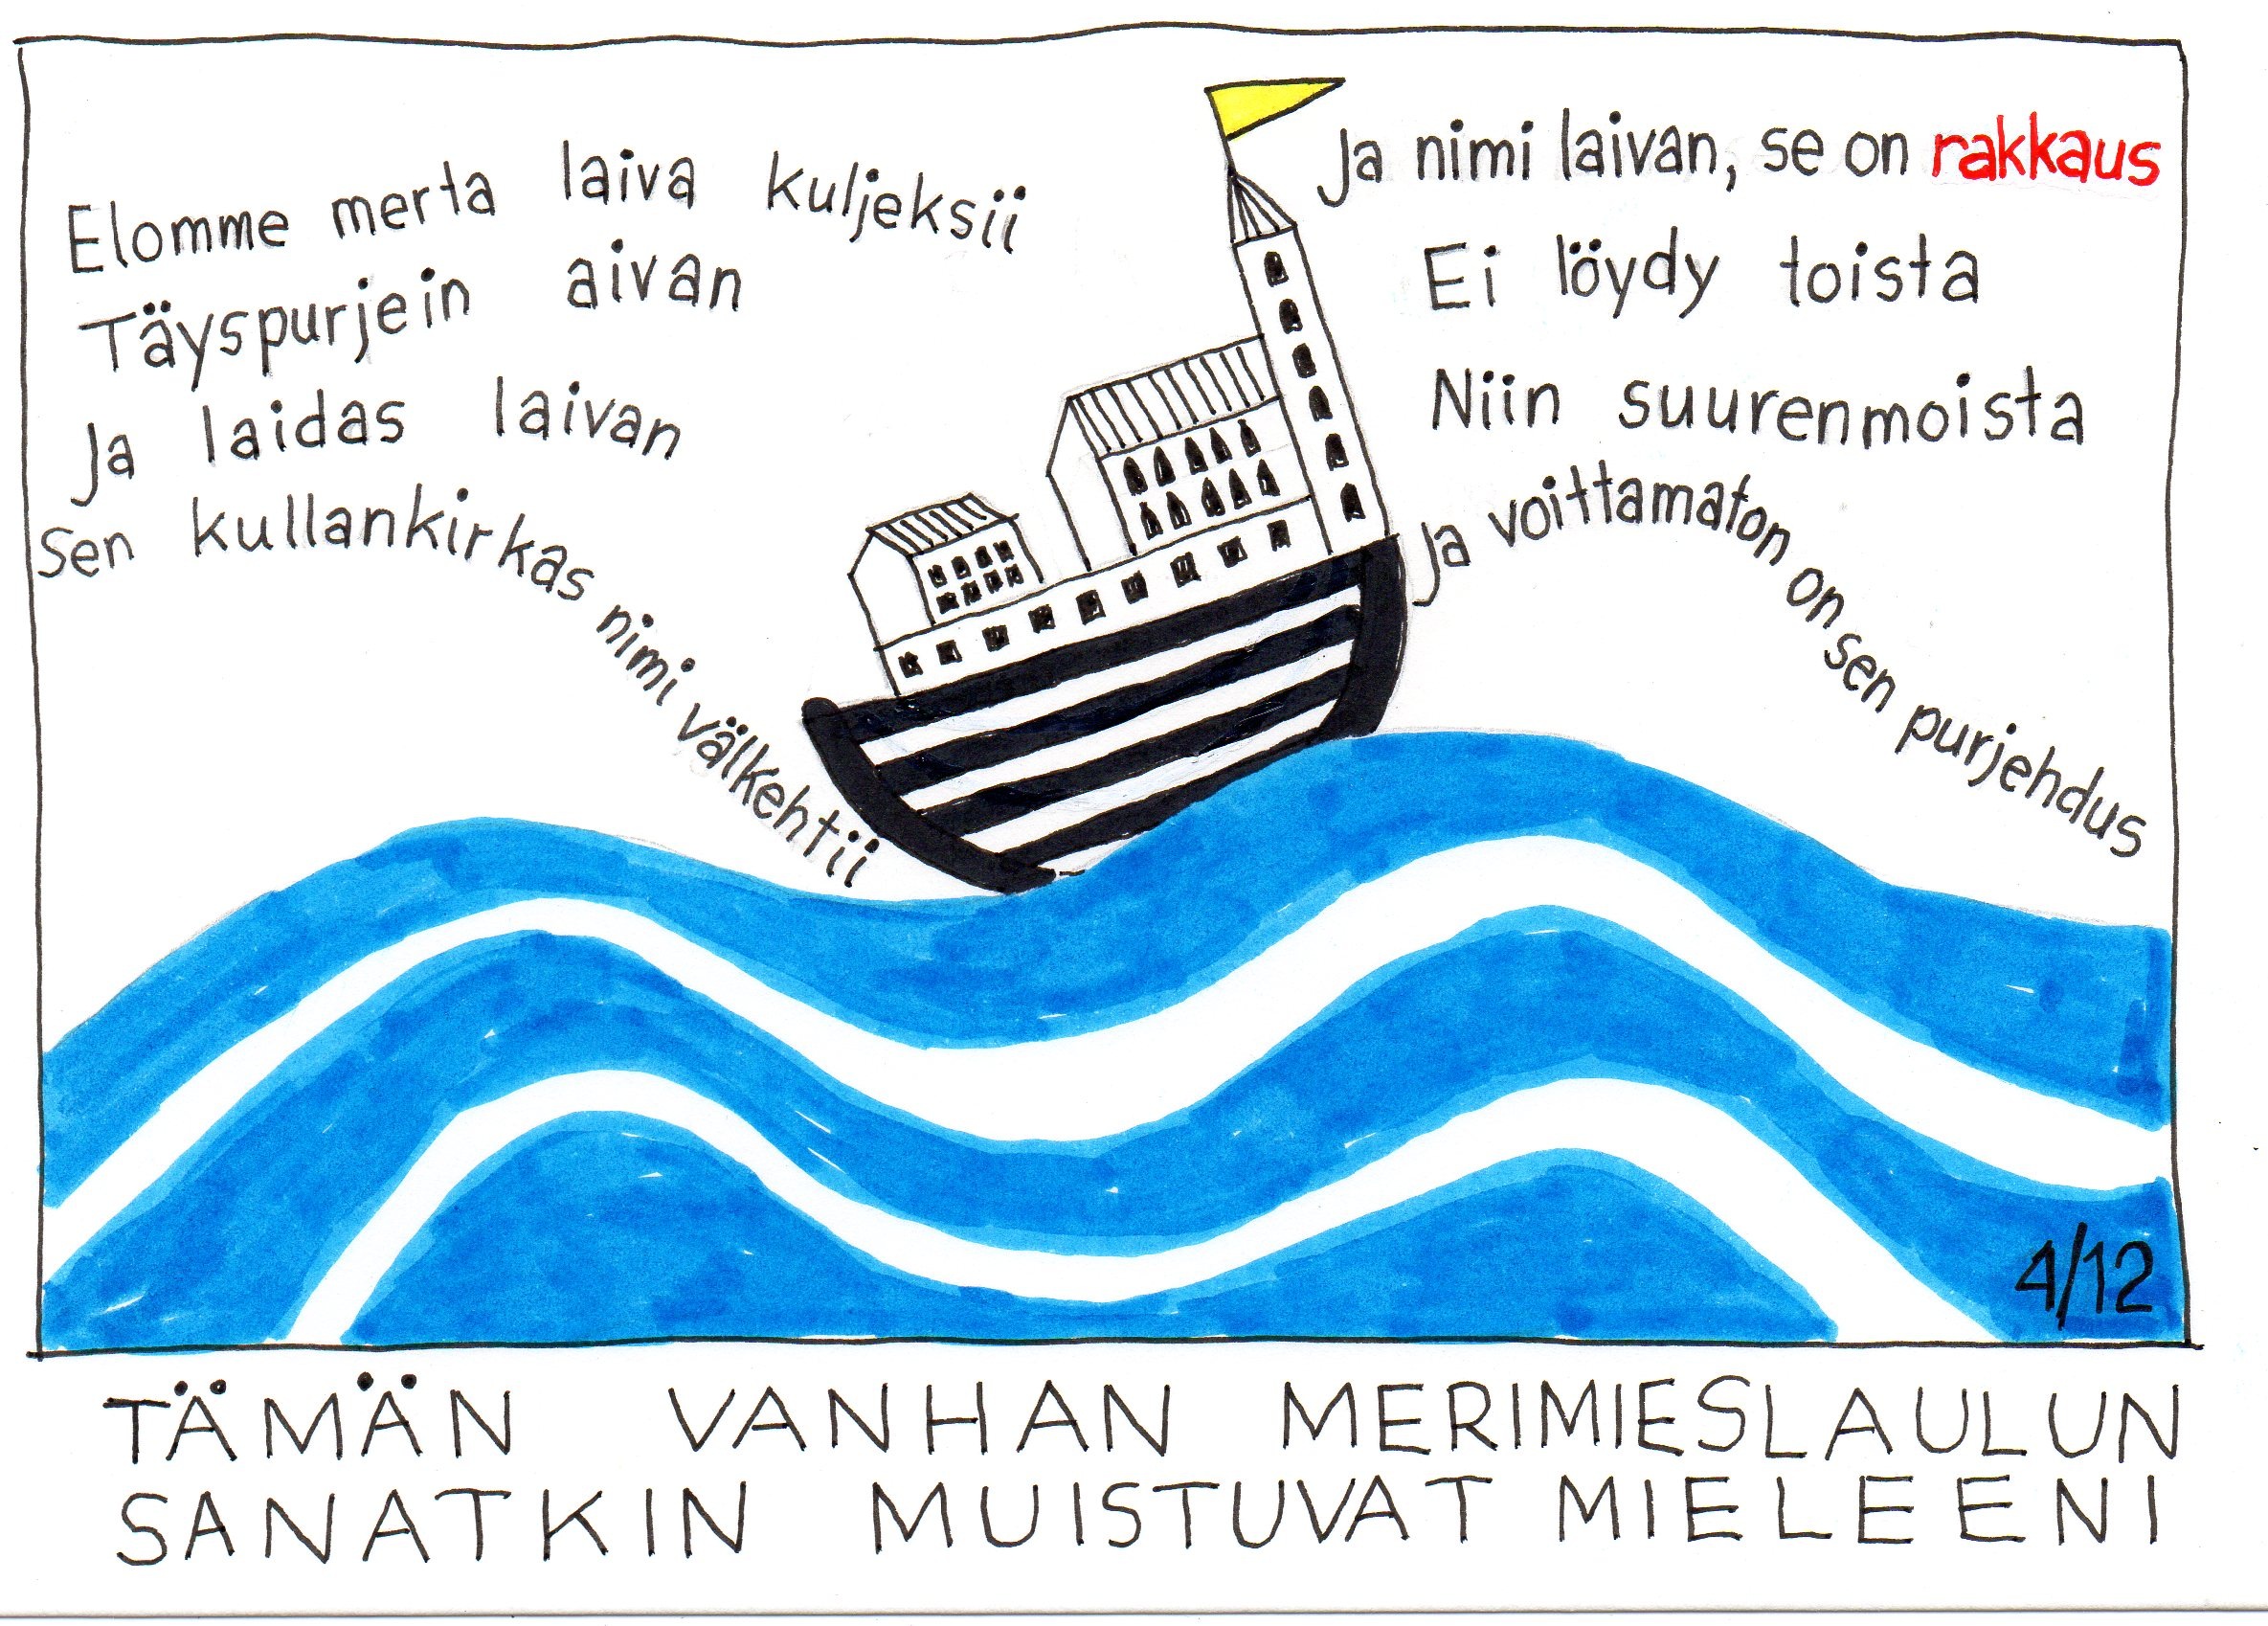 Elomme merta laiva kuljeksii
Täyspurjein aivan
Ja laidas laivan
Sen kullankirkas nimi välkehtii
Ja nimi laivan, se on rakkaus
Ei löydy toista
Niin suurenmoista
Ja voittamaton on sen purjehdus
4/12
TÄMÄN VANHAN MERIMIESLAULUN
SANATKIN MUISTUVAT MIELEENI